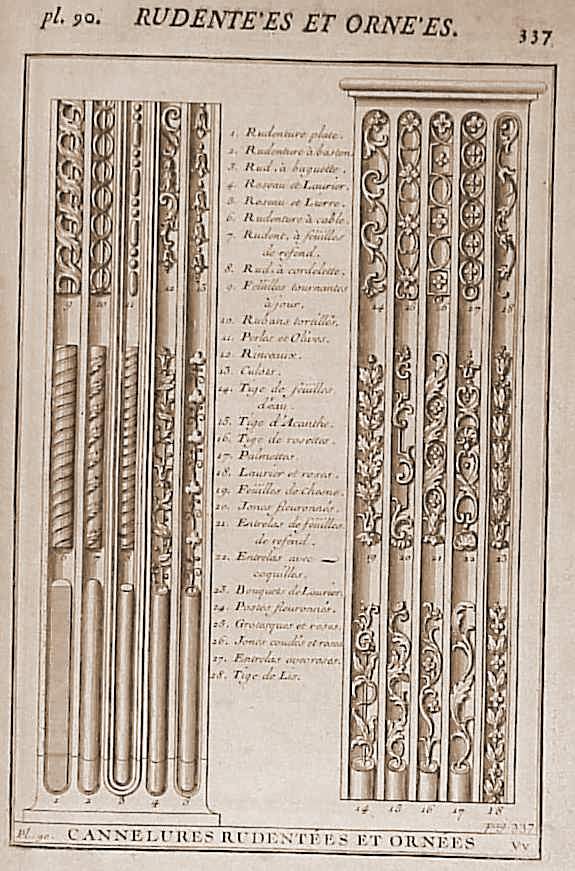 pl. 90. RUDENTE'ES ET ORNE'ES. 337
1. Rudenture plate.
2. Rudenture à baston.
3. Rud. à baguette.
4. Roseau et Laurier.
5. Roseau et Lierre.
6. Rudenture à cable.
7. Rudent. à feüilles
de refend.
8. Rud. à cordelette.
9. Feüilles tournantes
à jour.
10. Rubans tortillés.
11. Perles et Olives.
12. Rinceaux.
13. Culots.
14. Tige de feüilles
d'eau.
15. Tige d'Acanthe.
16. Tige de rosettes.
17. Palmettes.
18. Laurier et roses.
19. Feüilles de Chesne.
20. Joncs fleuronnés.
21. Entrelas de feüilles
de refend.
22. Entrelas avec
coquilles.
23. Bouquets de Laurier.
24. Postes fleuronnés.
25. Grotesques et roses.
26. Joncs coudés et roses
27. Entrelas avec roses.
28. Tige de Lis.
9 10 11 12 13
6 7
1 2 3 4 5
14 15 16 17 18
19 20 21 22 23
14 15 16 17 18
Pl. 90. CANNELURES RUDENTÉES ET ORNÉES
pag. 337
Vv